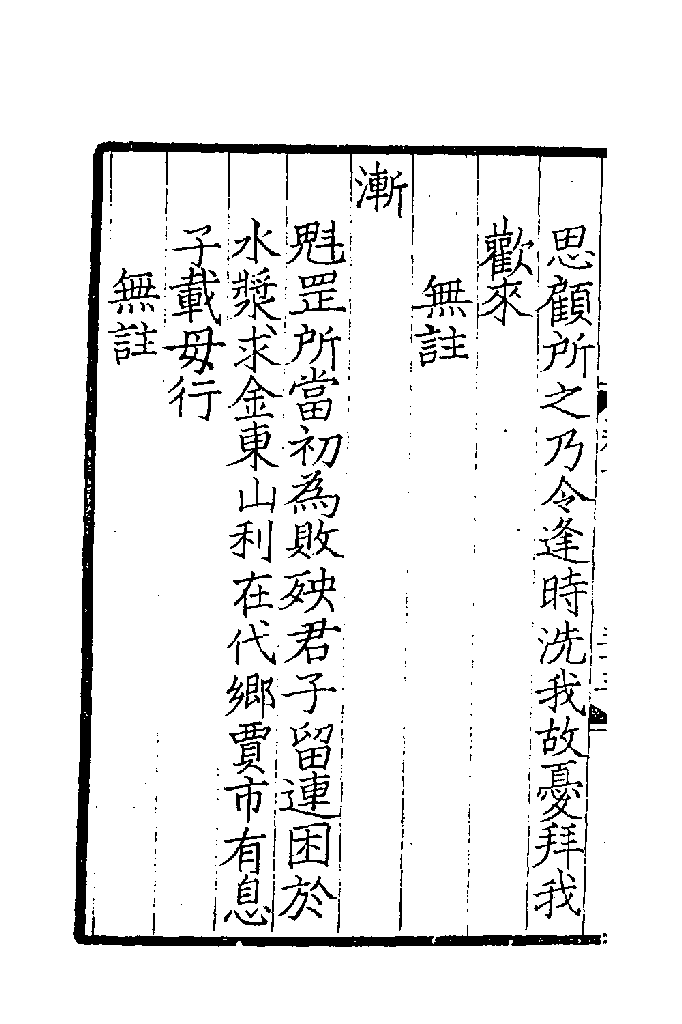 思顧所之乃令逢時洗我故憂拜我
歡來
無註
漸
魁罡所當初為敗殃君子留連困於
水漿求金東山利在代鄉賈市有息
子載毋行
無註